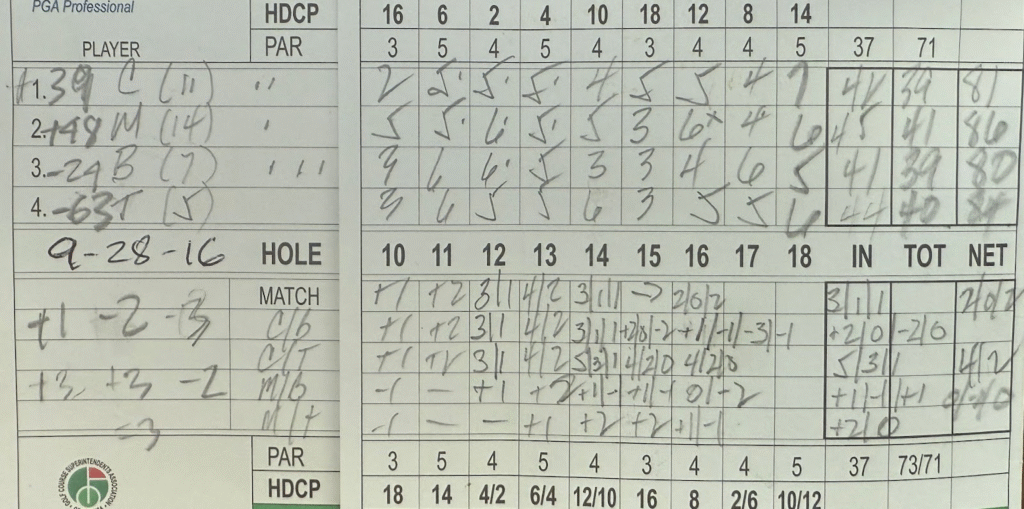 PGA Professional
HDCP 16 6 2 4 10 18 12 8 14
PLAYER PAR 3 5 4 5 4 3 4 4 5 37 71
+1. 39 C (11) " 2 5· 5· 5· 4 5 5 4 7 42 39 81
2. +48 M (14) ' 5 5· 6 5· 5 3 6 4 6 45 41 86
3. -24 B (7) ' ' ' 3 6 6· 5 3 3 4 6 5 41 39 80
4. -63 T (5) 3 6 5 5 6 3 5 5 6 44 40 84
9-28-16 HOLE 10 11 12 13 14 15 16 17 18 IN TOT NET
MATCH +1 +2 3|1 4|2 3|1|1 → 2|0|2 3|1|1 2|0|2
+1 -2 -3 C/b +1 +2 3|1 4|2 3|1|1 +2|0|-2 +1|-1|-3|-1 +2|0 -2|0
C/T +1 +2 3|1 4|2 5|3|1 4|2|0 4|2|0 5|3|1 4|2
+3 +3 -2 M/b -1 - +1 +2 +1|-1 +1|-1 0|-2 +1|-1 +1
-3 M/t -1 - - +1 +2 +2 +1|-1 +2|0
PAR 3 5 4 5 4 3 4 4 5 37 73/71
HDCP 18 14 4/2 6/4 12/10 16 8 2/6 10/12
GOLF COURSE SUPERINTENDENTS ASSOCIATION